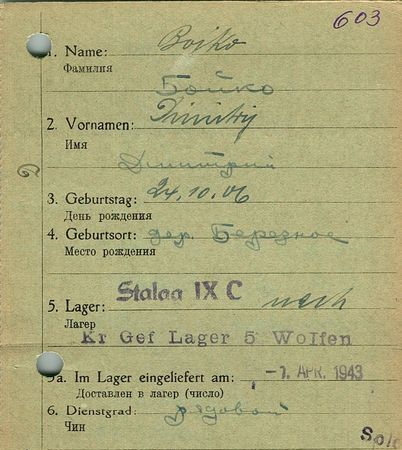 603
1. Name: Boiko
Фамилия
Бойко
2. Vornamen: Dimitrij
Имя
Дмитрий
3. Geburtstag: 24.10.06
День рождения
4. Geburtsort: дер. Бередное
Место рождения
Stalag IX C nach
5. Lager:
Лагерь
Kr Gef Lager 5 Wolfen
5a. Im Lager eingeliefert am: -7. APR. 1943
Доставлен в лагерь (число)
6. Dienstgrad: рядовой
Чин